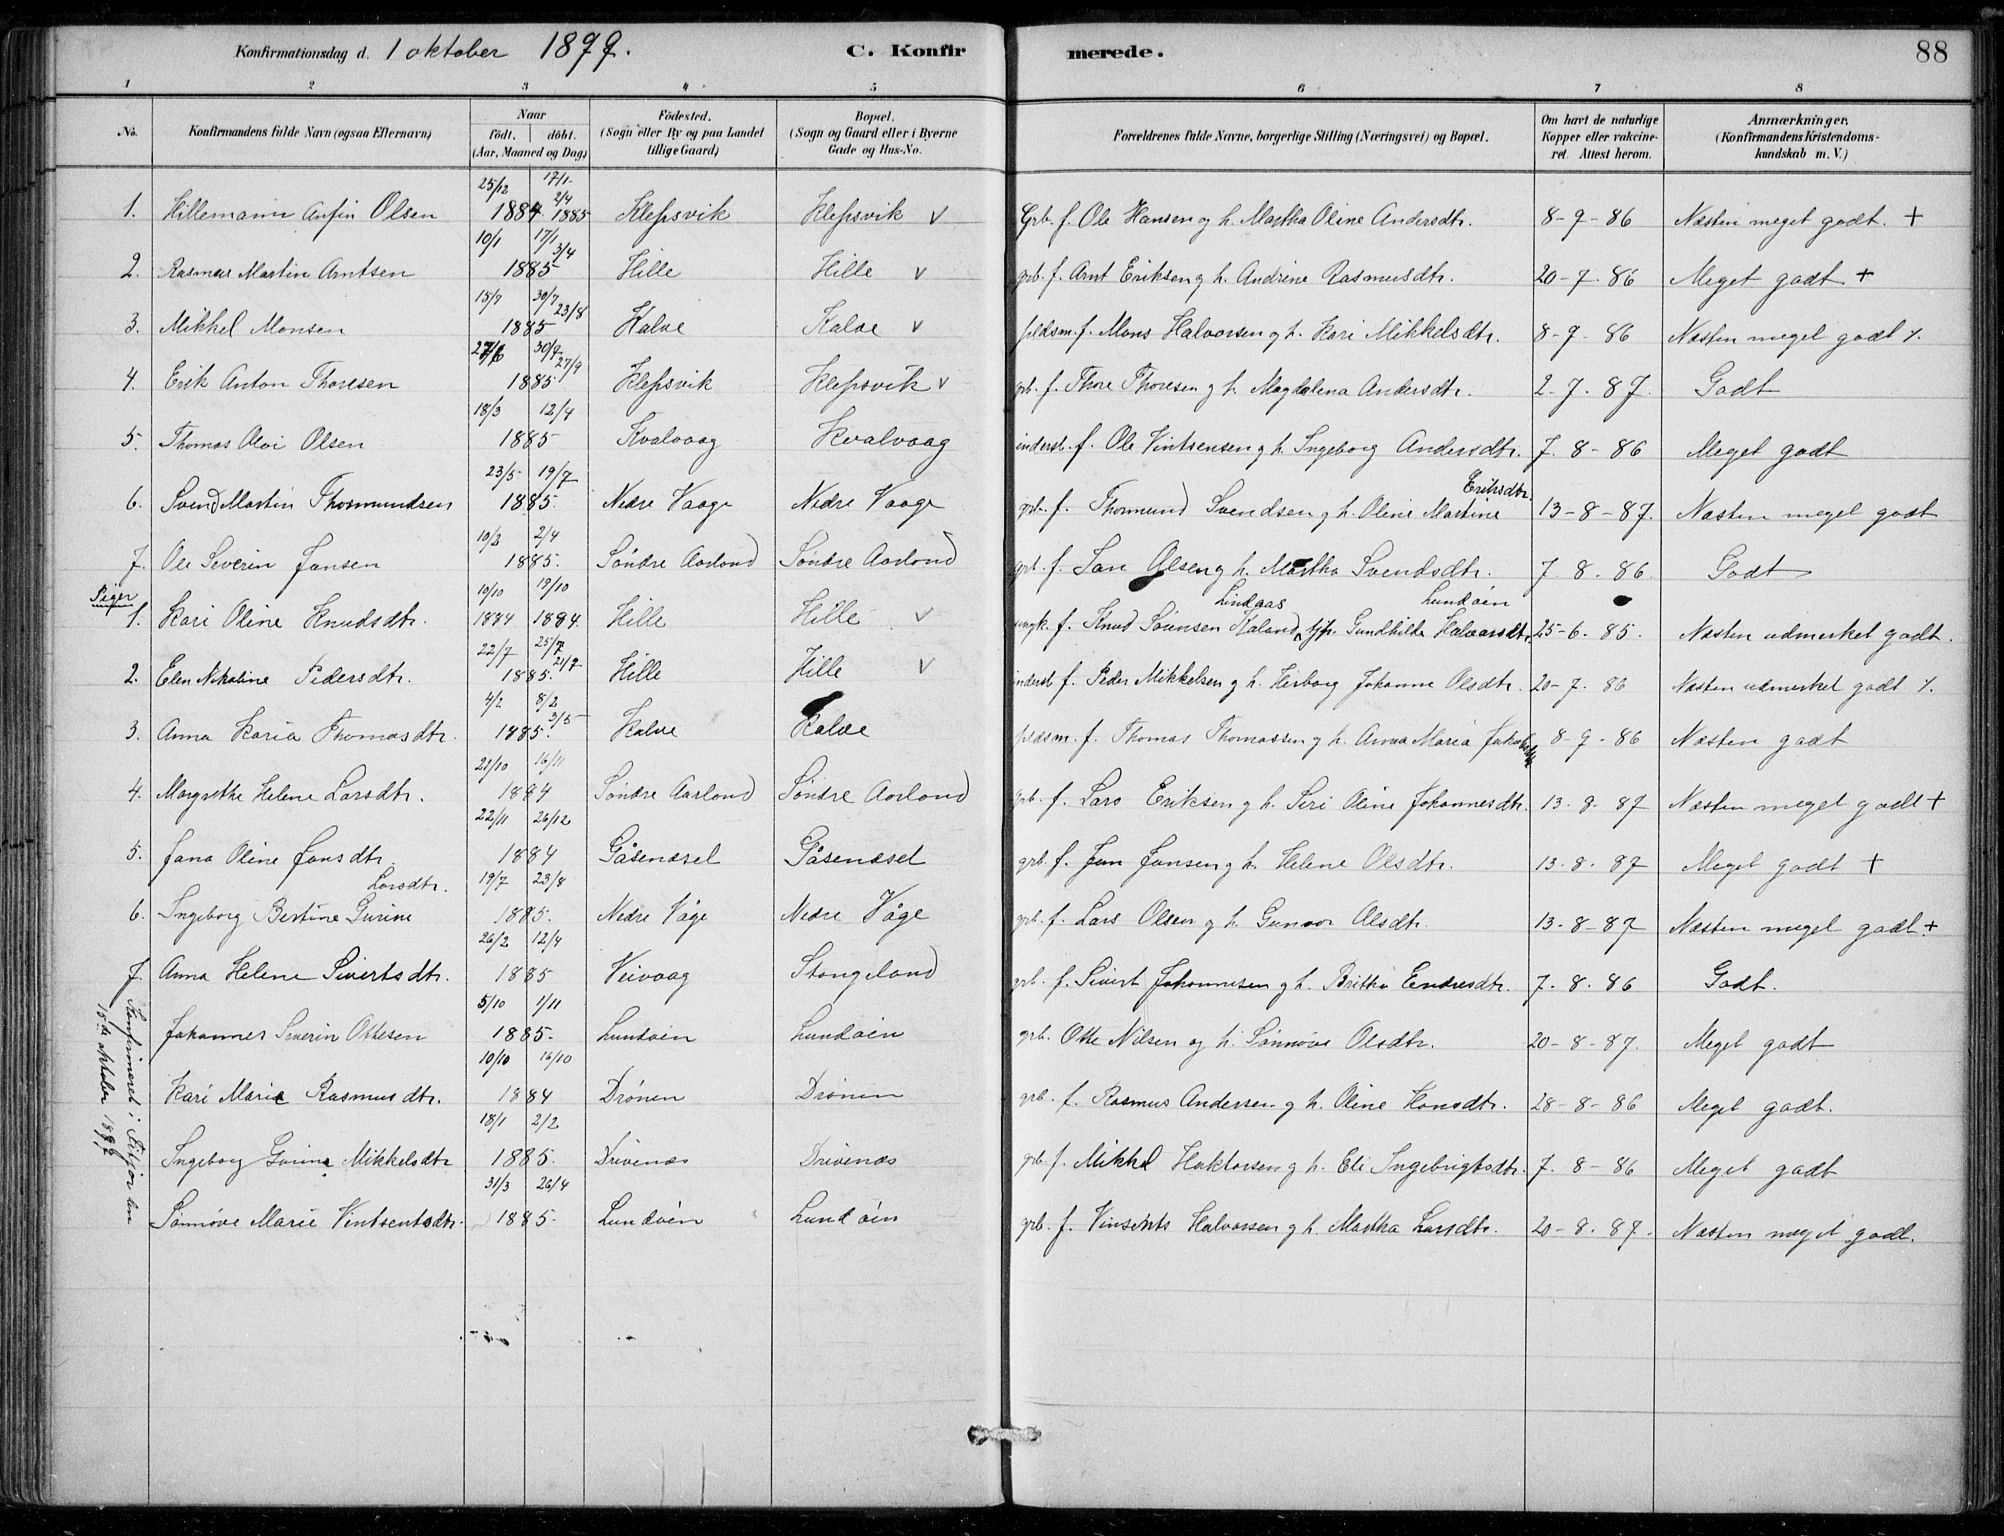 Konfirmationsdag d. 1 oktober 1899. C. Konfirmerede. 88
1 2 3 4 5 6 7 8
No. Konfirmandens fulde Navn (ogsaa Efternavn) Naar födt. döbt. (Aar, Maaned og Dag) Födested. (Sogn eller By og paa Landet tillige Gaard) Bopæl. (Sogn og Gaard eller i Byerne Gade og Hus-No. Forældrenes fulde Navne, borgerlige Stilling (Næringsvei) og Bopæl. Om havt de naturlige Kopper eller vakcineret. Attest herom. Anmærkninger. (Konfirmandens Kristendomskundskab m. V.)
25/12 17/1 2/4
1. Hillemann Anfin Olsen 1884 1885 Klepsvik Klepsvik v Grb. f. Ole Hansen og h. Martha Oline Andersdtr. 8-9-86 Næsten meget godt. +
10/1 17/1 3/4
2. Rasmus Martin Arntsen 1885 Hille Hille v grb. f. Arnt Eriksen g h. Andrine Rasmusdtr. 20-7-86 Meget godt +
15/7 30/7 23/8
3. Mikkel Monsen 1885 Kalve Kalve v pldsm. f. Mons Halvorsen g h. Kari Mikkelsdtr. 8-9-86 Næsten meget godt
30/7 27/9
4. Erik Anton Thoresen 1885 Klepsvik Klepsvik v grb. f. Thore Thoresen g h. Magdalena Andersdtr. 2-7-87. Godt
18/3 12/4
5. Thomas Olai Olsen 1885 Kvalvaag Kvalvaag inderst. f. Ole Vintsensen g h. Ingeborg Andersdtr. 7-8-86 Meget godt
23/5 19/7 Eriksdtr.
6. Svend Martin Thormundsen 1885. Nedre Vaage Nedre Vaage grb. f. Thormund Svendsen g h. Oline Martine 13-8-87. Næsten meget godt
10/2 2/4
7. Ole Severin Jansen 1885. Söndre Aarland Söndre Aarland grb. f. Jan Olsen g h. Martha Svendsdtr. 7-8-86. Godt
Piger 10/10 19/10 Lindaas Lundöen
1. Kari Oline Knudsdtr. 1884 1884. Hille Hille v ungk. f. Knud Sörensen Kaland, Gundhilde Halvorsdtr. 25-6-85. Næsten udmerket godt.
22/7 25/7 21/9
2. Elen Nikoline Pedersdtr. 1885. Hille Hille v inderst f. Peder Mikkelsen g h. Herborg Johanne Olsdtr. 20-7-86 Næsten udmerket godt
4/2 8/2 3/5
3. Anna Karia Thomasdtr. 1885. Kalve Kalve pldsm. f. Thomas Thomassen g h. Anna Maria Jakobsdtr. 8-9-86 Næsten godt
21/10 16/11
4. Margrethe Helene Larsdtr. 1884 Söndre Aarland Söndre Aarland grb. f. Lars Eriksen g h. Siri Oline Johannesdtr. 13-8-87 Næsten meget godt +
22/11 26/12
5. Jana Oline Jansdtr. 1884 Gåsenæsel Gåsenæsel grb. f. Jan Jansen g h. Helene Olsdtr. 13-8-87 Meget godt +
Larsdtr. 19/7 23/8
6. Ingeborg Bertine Gurine 1885. Nedre Våge Nedre Våge grb. f. Lars Olsen g h. Gunvor Olsdtr. 13-8-87 Næsten meget godt. +
26/2 12/4
7. Anna Helene Sivertsdtr. 1885 Veivaag Stangeland grb. f. Sivert Johannesen g h. Britha Endresdtr. 7-8-86 Godt.
Konfirmeret i Fitjar den 15de oktober 1899
5/10 1/11
Johannes Severin Ottesen 1885. Lundöen Lundöen grb. Otte Nilsen og h. Sönnöve Olsdtr. 20-8-87. Meget godt
10/10 16/10
Kari Marie Rasmusdtr. 1884 Drönen Drönen grb. f. Rasmus Andersen g h. Oline Hansdtr. 28-8-86 Meget godt.
18/1 2/2
Ingeborg Gurine Mikkelsdtr. 1885. Drivenæs Drivenæs grb. f. Mikkel Haktorsen g h. Eli Ingebrigtsdtr. 7-8-86 Meget godt
31/3 26/4
Sönnöve Marie Vintsentsdtr. 1885. Lundöen Lundöen grb. f. Vinsents Halvorsen g h. Martha Larsdtr. 20-8-87. Næsten meget godt.